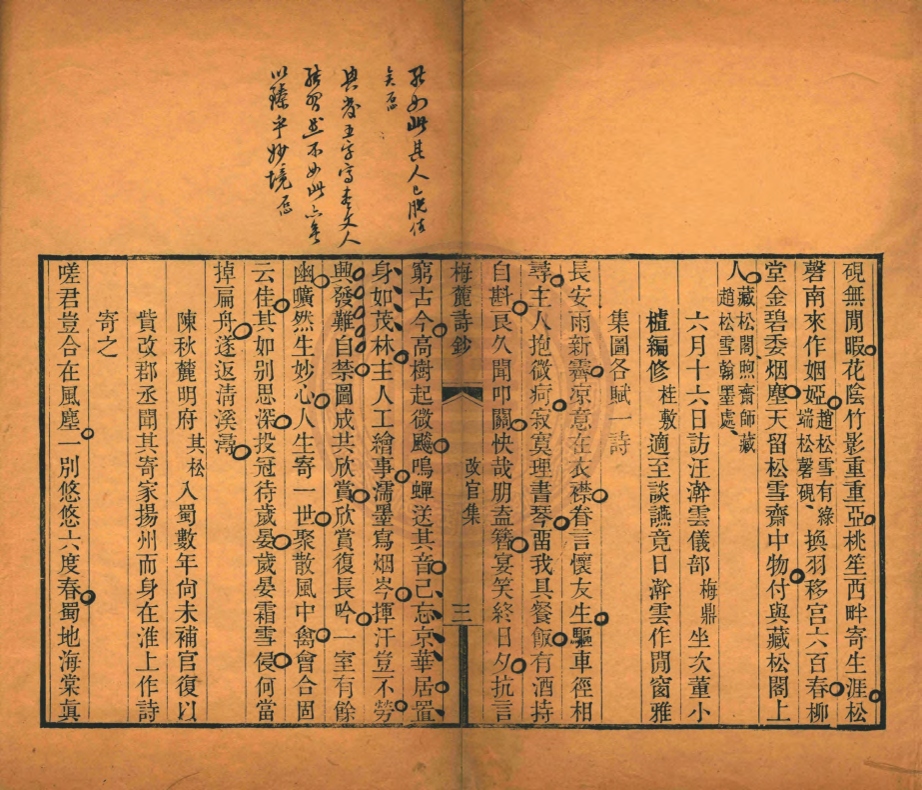 硯無閒暇花陰竹影重重亞桃笙西畔寄生涯松
磬南來作姻婭趙松雪有綠端松磬硯換羽移宮六百春柳
堂金碧委烟塵天留松雪齋中物付與藏松閣上
人藏松閣煦齋師藏趙松雪翰墨處
六月十六日訪汪澣雲儀部梅鼎坐次董小
槎編修桂敷適至談讌竟日澣雲作閒窗雅
集圖各賦一詩
長安雨新霽凉意在衣襟眷言懷友生驅車徑相
尋主人抱微疴寂寞理書琴畱我具餐飯有酒持
自斟良久聞叩關快哉朋盍簪宴笑終日夕抗言
梅麓詩鈔
改官集
三
窮古今高樹起微飈鳴蟬送其音已忘京華居置
身如茂林主人工繪事濡墨寫烟岑揮汗豈不勞
興發難自禁圖成共欣賞欣賞復長吟一室有餘
幽曠然生妙心人生寄一世聚散風中禽會合固
云佳其如別思深投冠待歲晏歲晏霜雪侵何當
掉扁舟遂返清溪潯
陳秋麓明府其松入蜀數年尙未補官復以
貲改郡丞聞其寄家揚州而身在淮上作詩
寄之
嗟君豈合在風塵一別悠悠六度春蜀地海棠眞
能如此其人已脫俗
矣
興發五字寫盡文人
結習然不如此亦無
以臻乎妙境